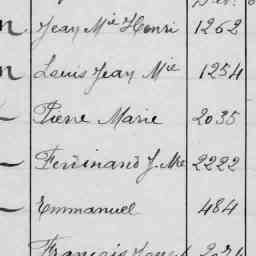 n Jean Mie Henri 1262
n Louis Jean Mie 1254
Pierre Marie 2035
Ferdinand J. Mie 2222
Emmanuel 484
François